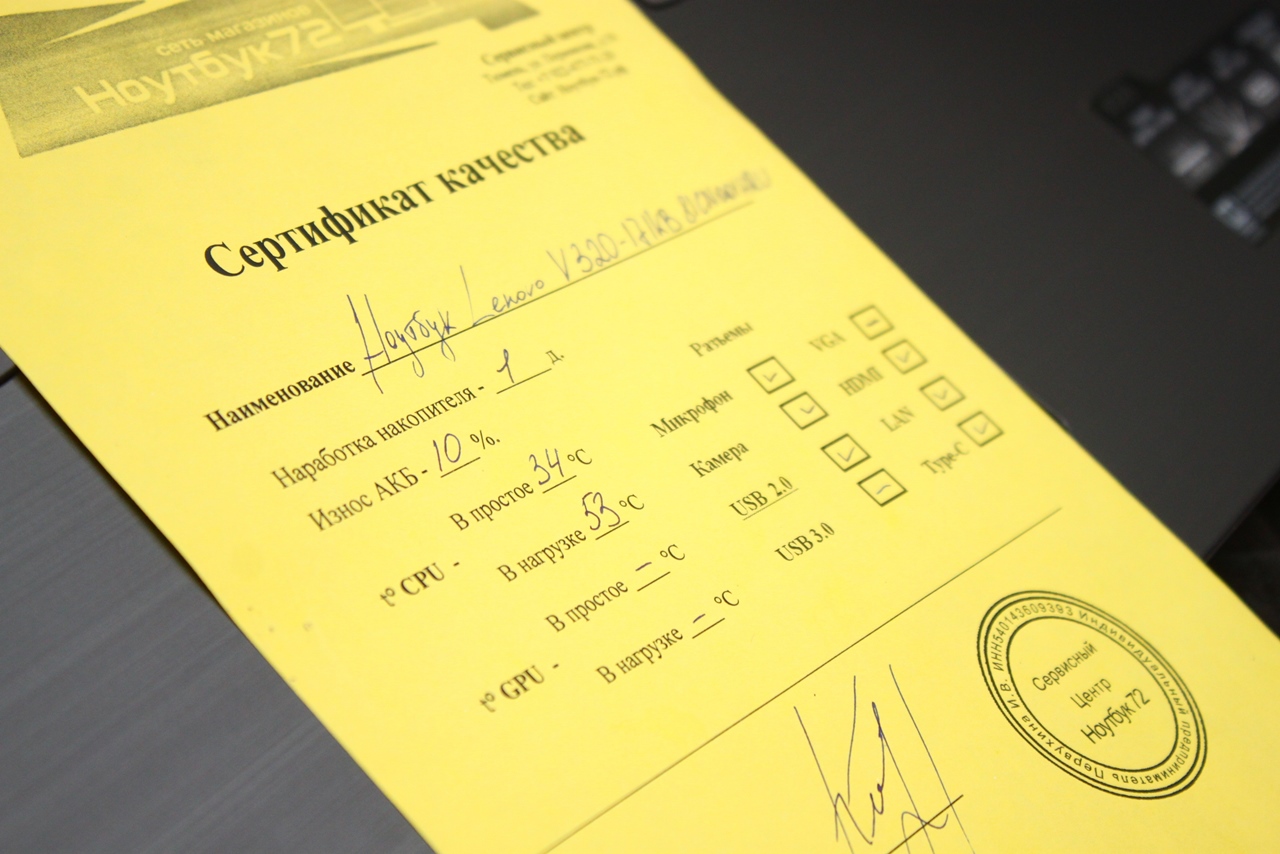 сеть магазинов
Ноутбук72
Сервисный центр
Сертификат качества
Наименование Ноутбук Lenovo V320-17IKB
Наработка накопителя - 1 д.
Износ АКБ - 10 %.
t° CPU - В простое 34 °C
В нагрузке 53 °C
t° GPU - В простое – °C
В нагрузке – °C
Разъемы
Микрофон ✓
Камера ✓
USB 2.0 ✓
USB 3.0 –
VGA –
HDMI ✓
LAN ✓
Type-C ✓
ИНН540143609393 Индивидуальный предприниматель Первухина И.В.
Сервисный
Центр
Ноутбук72